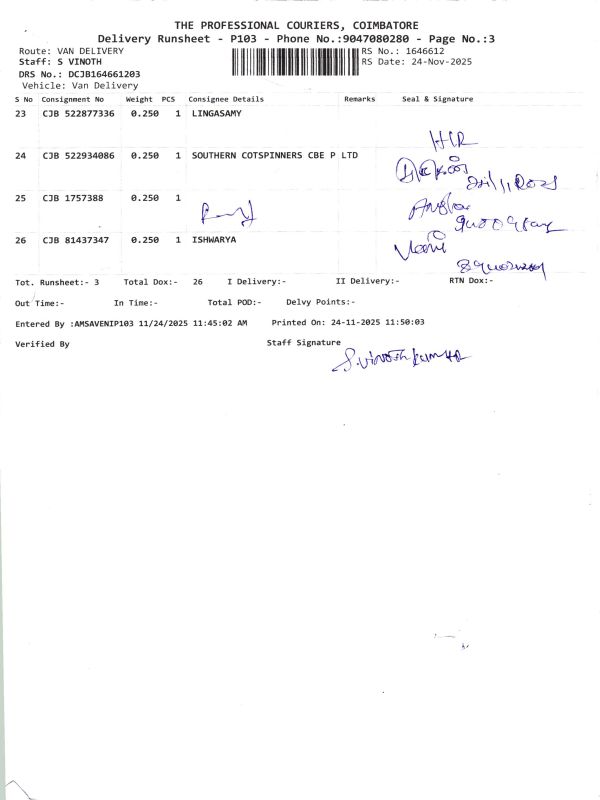 THE PROFESSIONAL COURIERS, COIMBATORE
Delivery Runsheet - P103 - Phone No.:9047080280 - Page No.:3
Route: VAN DELIVERY
RS No.: 1646612
Staff: S VINOTH
RS Date: 24-Nov-2025
DRS No.: DCJB164661203
Vehicle: Van Delivery
S No Consignment No Weight PCS Consignee Details Remarks Seal & Signature
23 CJB 522877336 0.250 1 LINGASAMY
24 CJB 522934086 0.250 1 SOUTHERN COTSPINNERS CBE P LTD
25 CJB 1757388 0.250 1
26 CJB 81437347 0.250 1 ISHWARYA
Tot. Runsheet:- 3 Total Dox:- 26 I Delivery:- II Delivery:- RTN Dox:-
Out Time:- In Time:- Total POD:- Delvy Points:-
Entered By :AMSAVENIP103 11/24/2025 11:45:02 AM Printed On: 24-11-2025 11:50:03
Verified By Staff Signature
S.vinothkumar